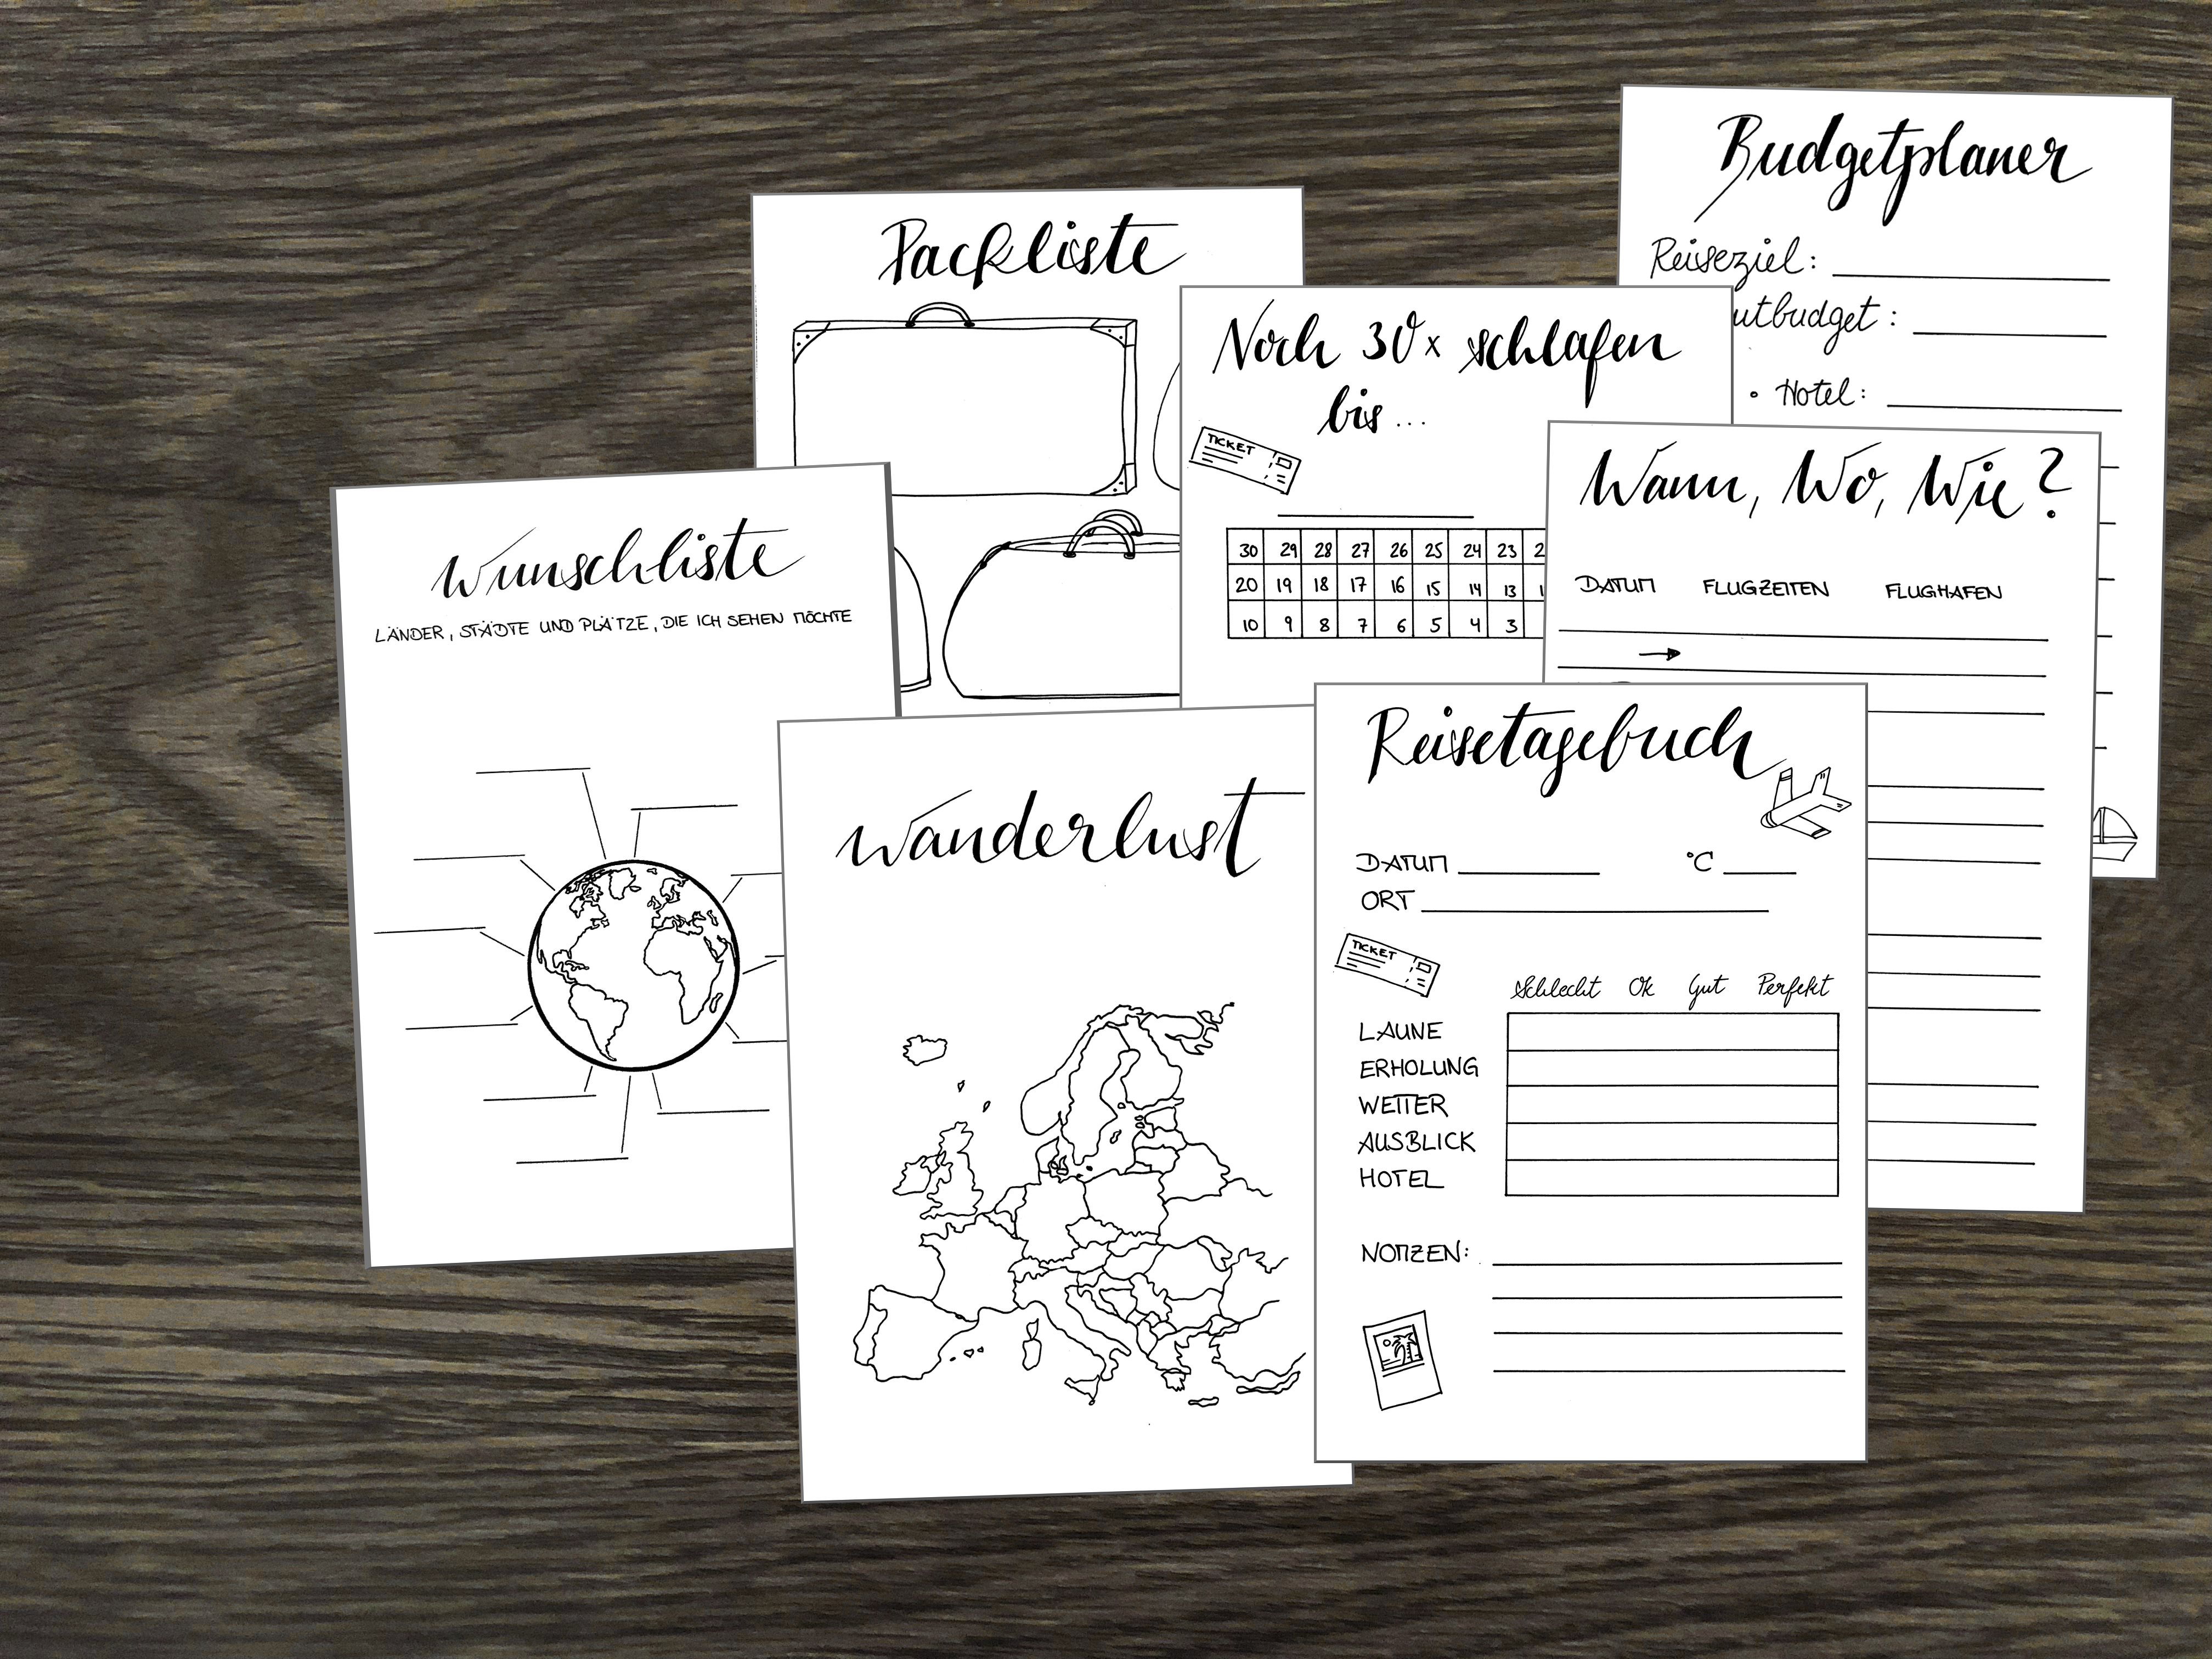 Budgetplaner
Reiseziel:
utbudget:
• Hotel:
Packliste
Noch 30x schlafen
bis...
TICKET
30 29 28 27 26 25 24 23 2
20 19 18 17 16 15 14 13 1
10 9 8 7 6 5 4 3
Wann, Wo, Wie?
DATUM FLUGZEITEN FLUGHAFEN
Wunschliste
LÄNDER, STÄDTE UND PLÄTZE, DIE ICH SEHEN MÖCHTE
Wanderlust
Reisetagebuch
DATUM °C
ORT
TICKET
Schlecht Ok Gut Perfekt
LAUNE
ERHOLUNG
WETTER
AUSBLICK
HOTEL
NOTIZEN: